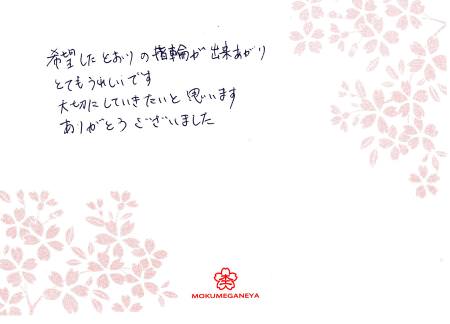 希望したとおりの指輪が出来あがり
とてもうれしいです
大切にしていきたいと思います
ありがとうございました
MOKUMEGANEYA